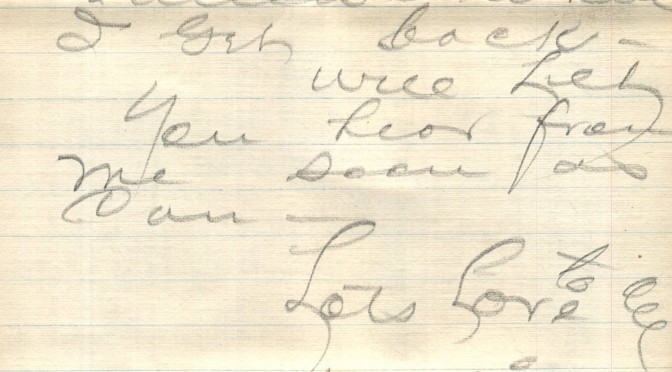 I get back –
will let
you hear from
me soon as
I can –
Lots Love to all